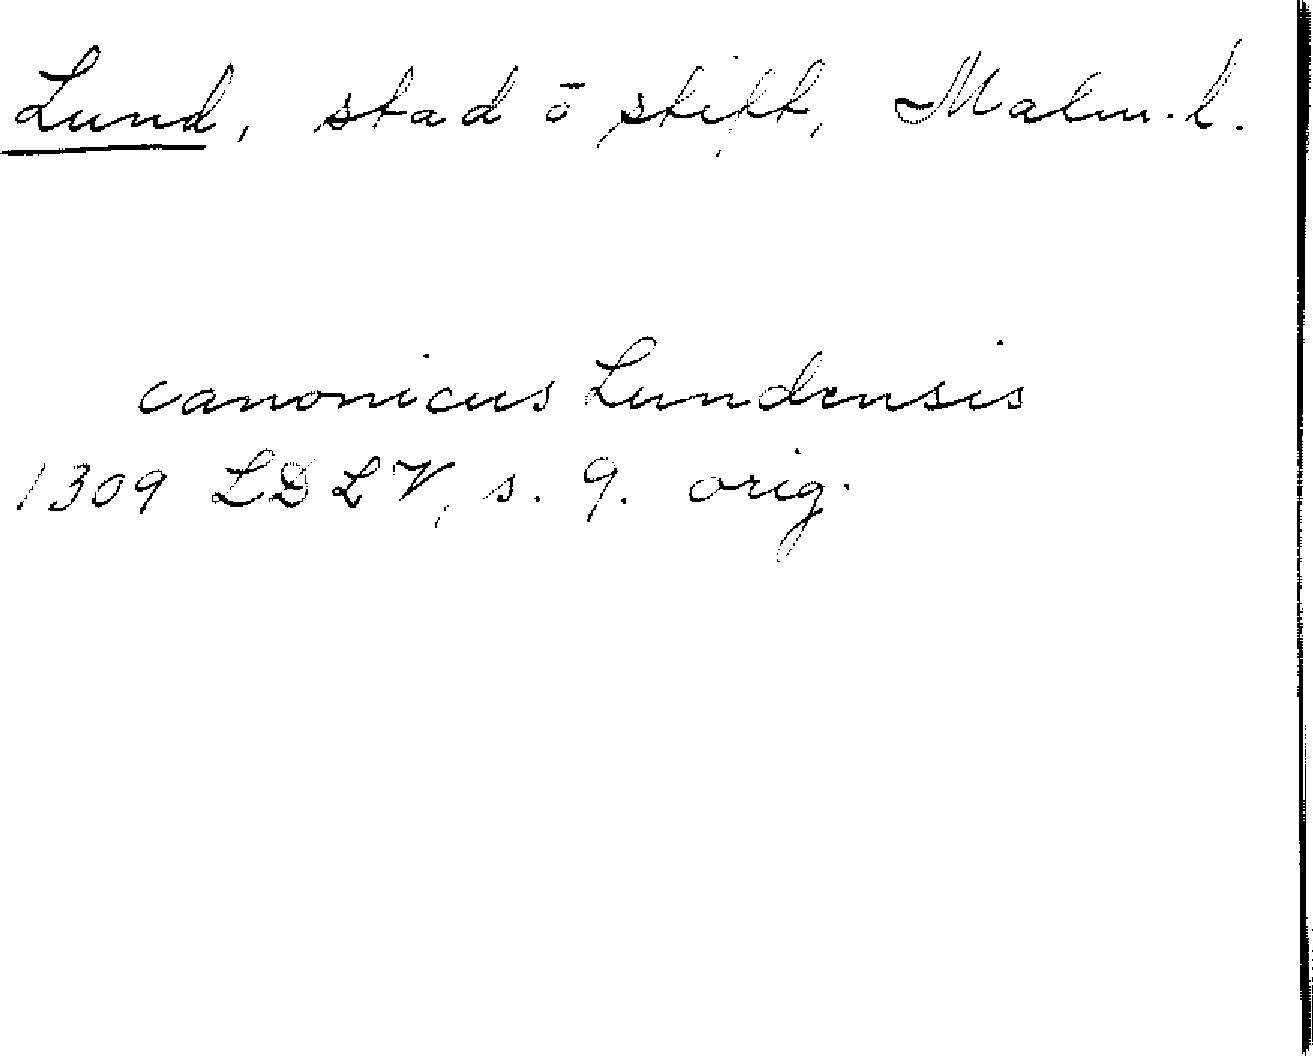 Lund, stad ō stift, Malm. l.
canonicus Lundensis
1309 LDLV, s. 9. orig.